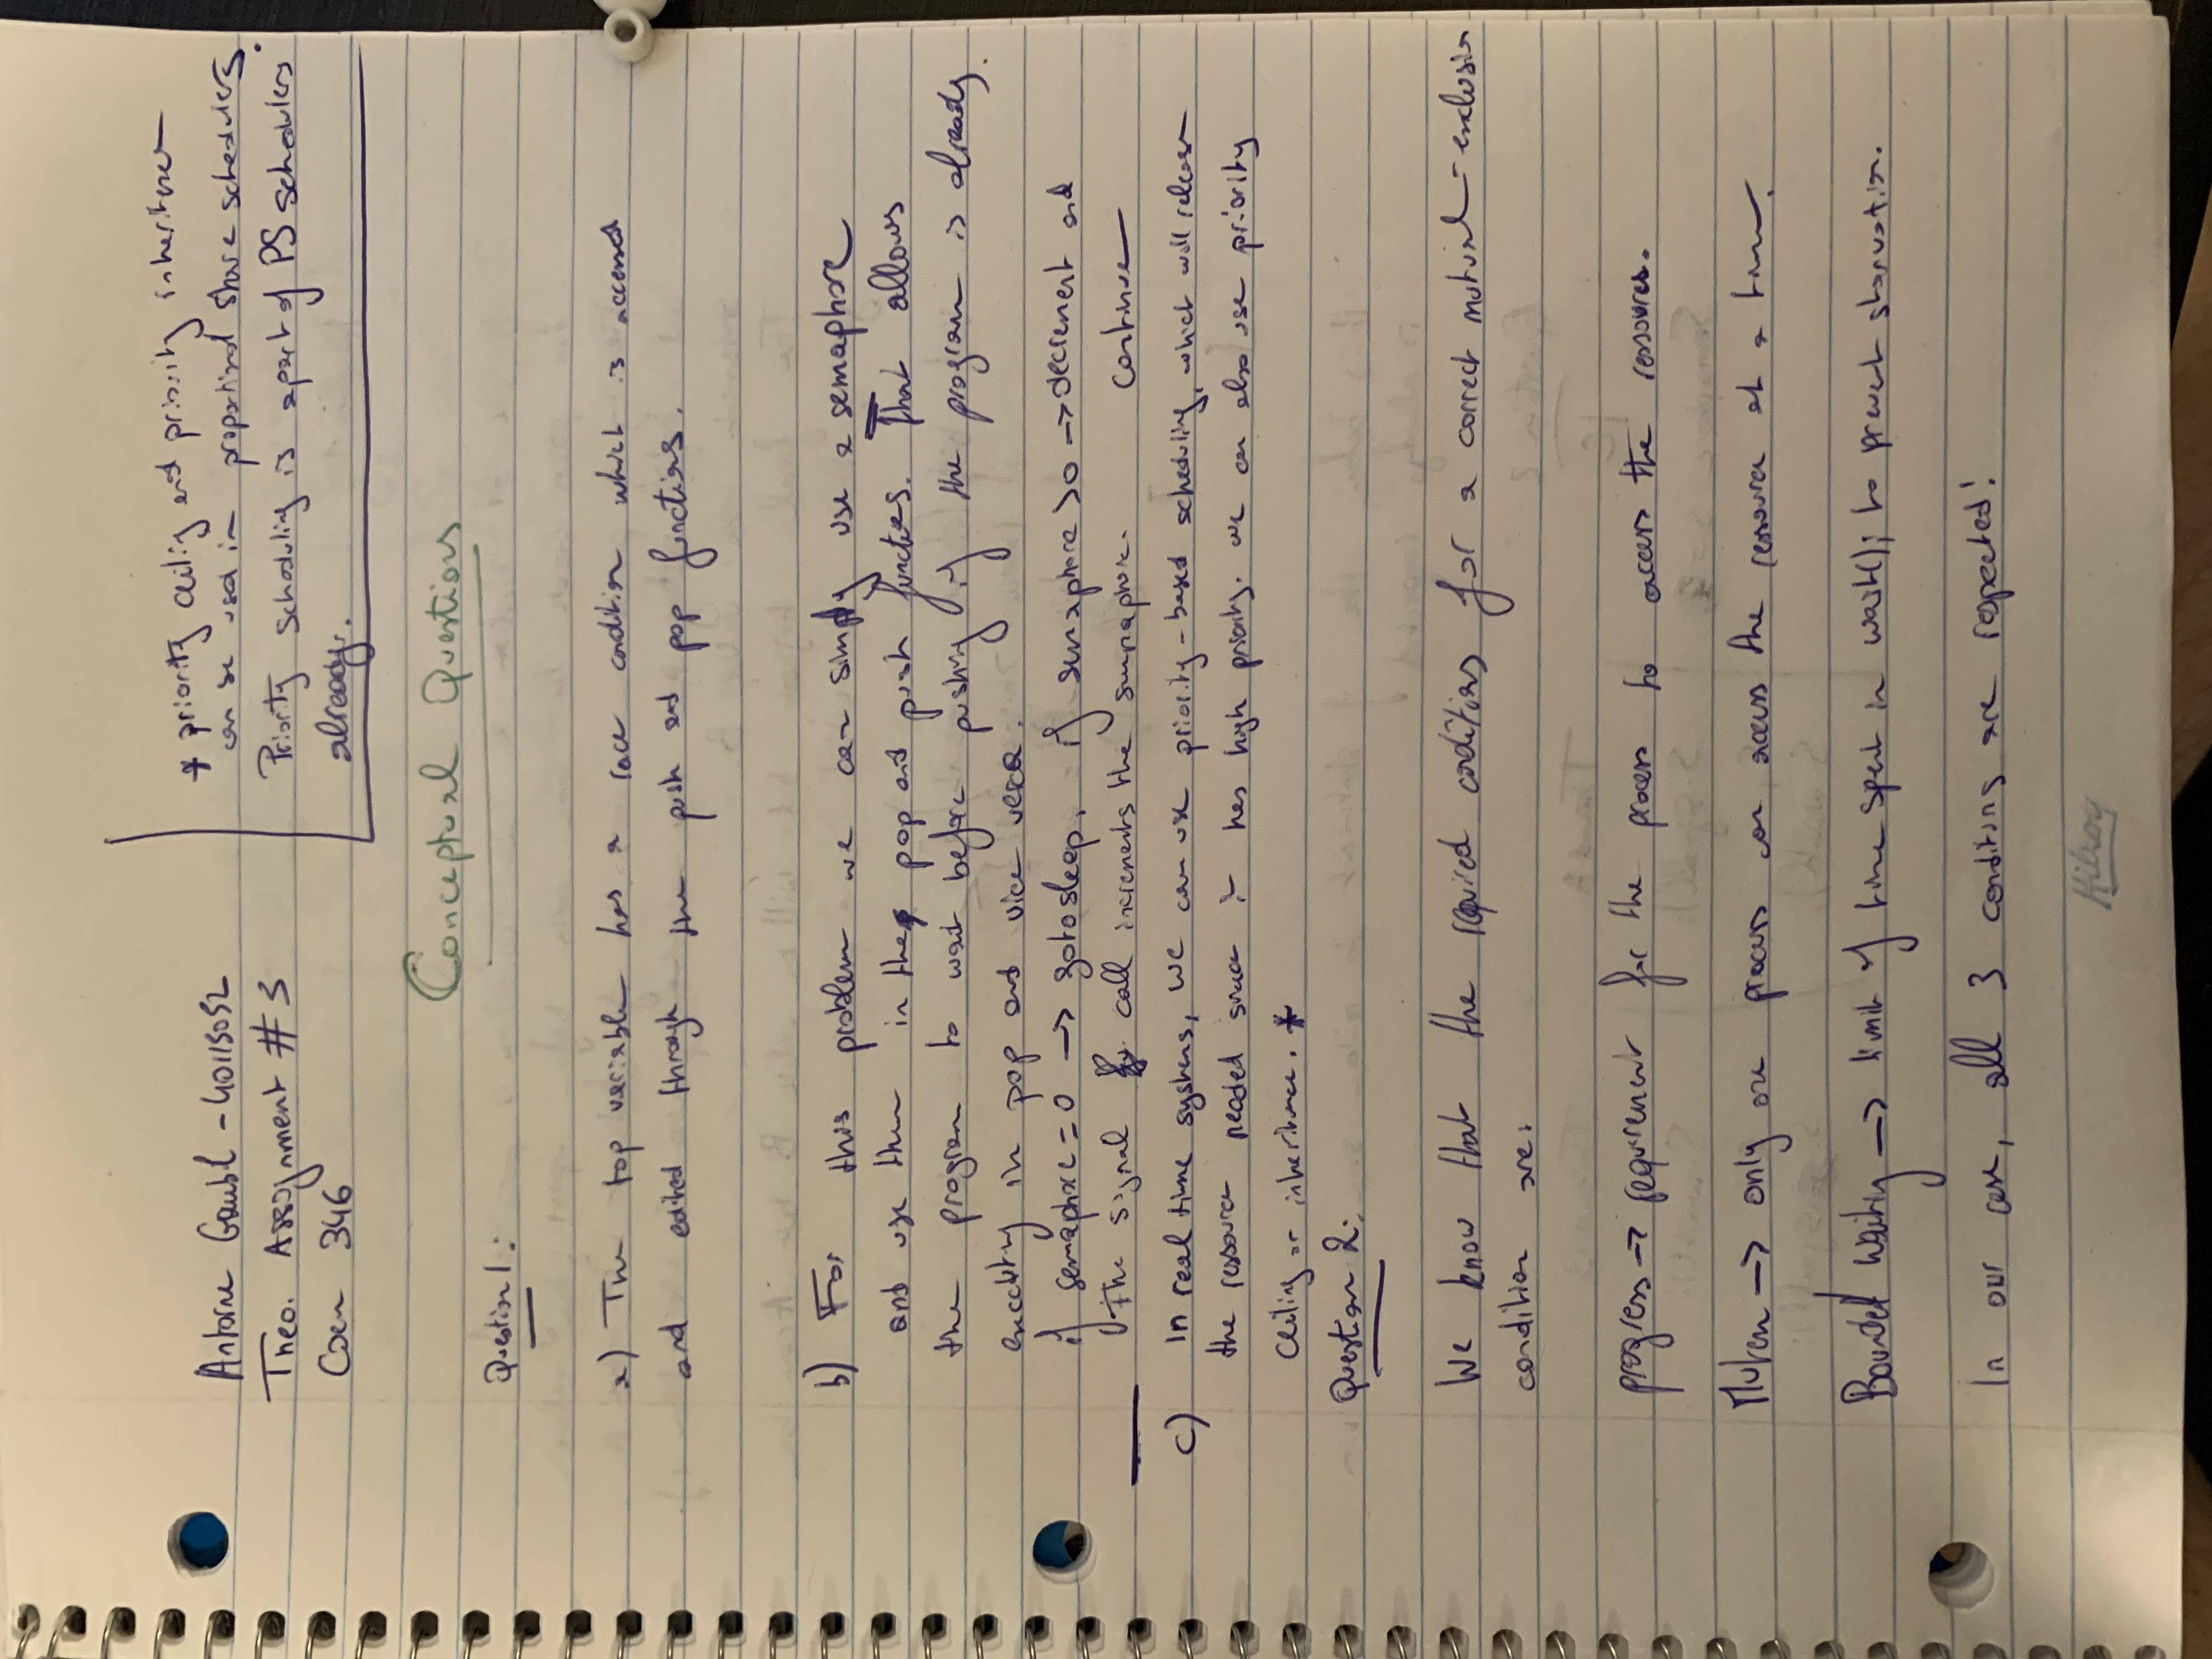 Antoine Gaubil - 40115052
Theo. Assignment #3
Coen 346
* priority ceiling and priority inheritence
can be used in proportional share schedulers.
Priority scheduling is a part of PS schedulers
already.
Conceptual Questions
Question 1:
a) The top variable has a race condition which is accessed
and edited through the push and pop functions.
b) For this problem we can simply use a semaphore
and use them in the pop and push functions. That allows
the program to wait before pushing if the program is already
executing in pop and vice versa.
if semaphore = 0 -> go to sleep, if semaphore > 0 -> decrement and
continue
The signal call increments the semaphore.
c) In real time systems, we can use priority-based scheduling, which will release
the ressource needed since it has high priority. we can also use priority
ceiling or inheritence. *
Question 2:
We know that the required conditions for a correct mutual-exclusion
condition are:
progress -> requirement for the process to access the ressources.
Mutex -> only one process can access the ressource at a time.
Bounded Waiting -> limit of time spent in wait(); to prevent starvation.
In our case, all 3 conditions are respected!
Hilroy